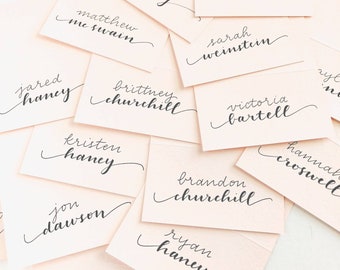 matthew
mcswain
sarah
weinstein
jared
haney
brittney
churchill
victoria
bartell
kristen
haney
hannah
croswell
brandon
churchill
jon
dawson
ryan
haney